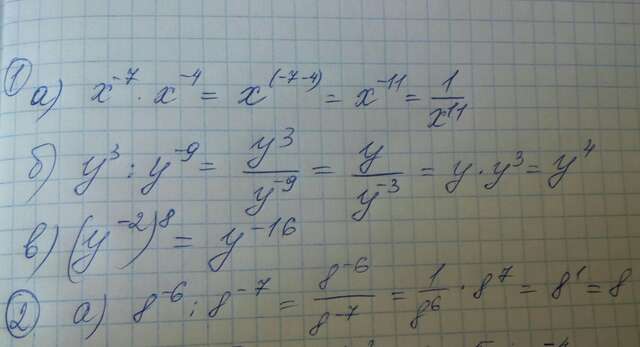 1) а) x⁻⁷ · x⁻⁴ = x⁽⁻⁷⁻⁴⁾ = x⁻¹¹ = 1/x¹¹
б) y³ : y⁻⁹ = y³/y⁻⁹ = y/y⁻³ = y · y³ = y⁴
в) (y⁻²)⁸ = y⁻¹⁶
2) а) 8⁻⁶ : 8⁻⁷ = 8⁻⁶/8⁻⁷ = 1/8⁶ · 8⁷ = 8¹ = 8